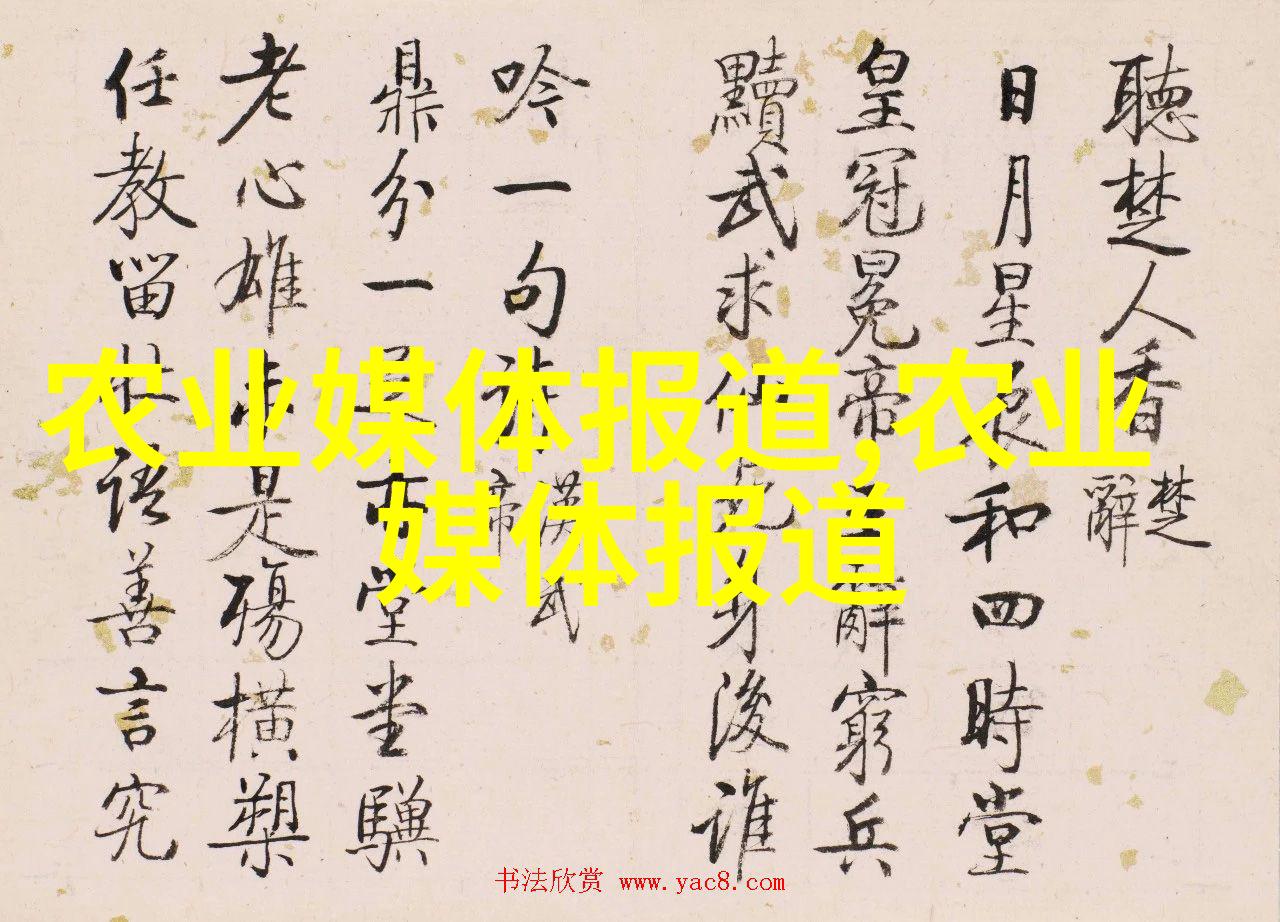 聽楚人香 楚辭
日月星辰和四時堂
皇冠冕帝辭窮兵
黷武求仙身後誰
吟一句 漢武帝
鼎分一堂堂驥
老心雄未是殤橫槊
任教留壯語善言究
农业媒体报道,农业
媒体报道
书法欣赏 www.yac8.com